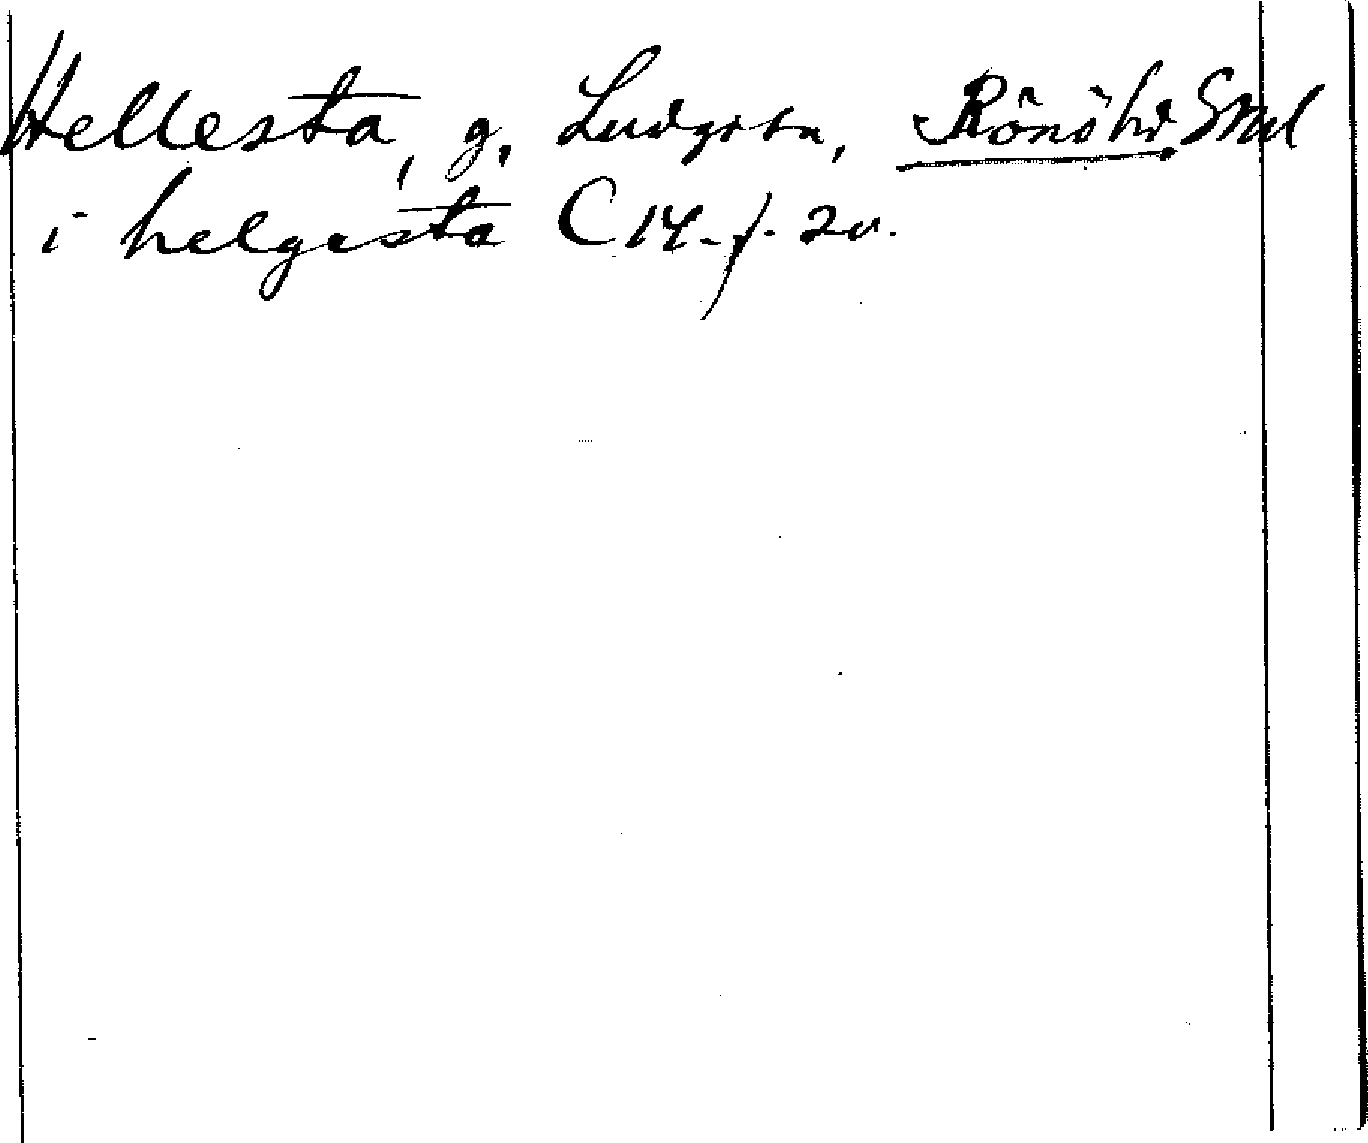 Hellesta, g. Ludgo sn, Rönö hd. Srml
i helgesta C 14. f. 20.